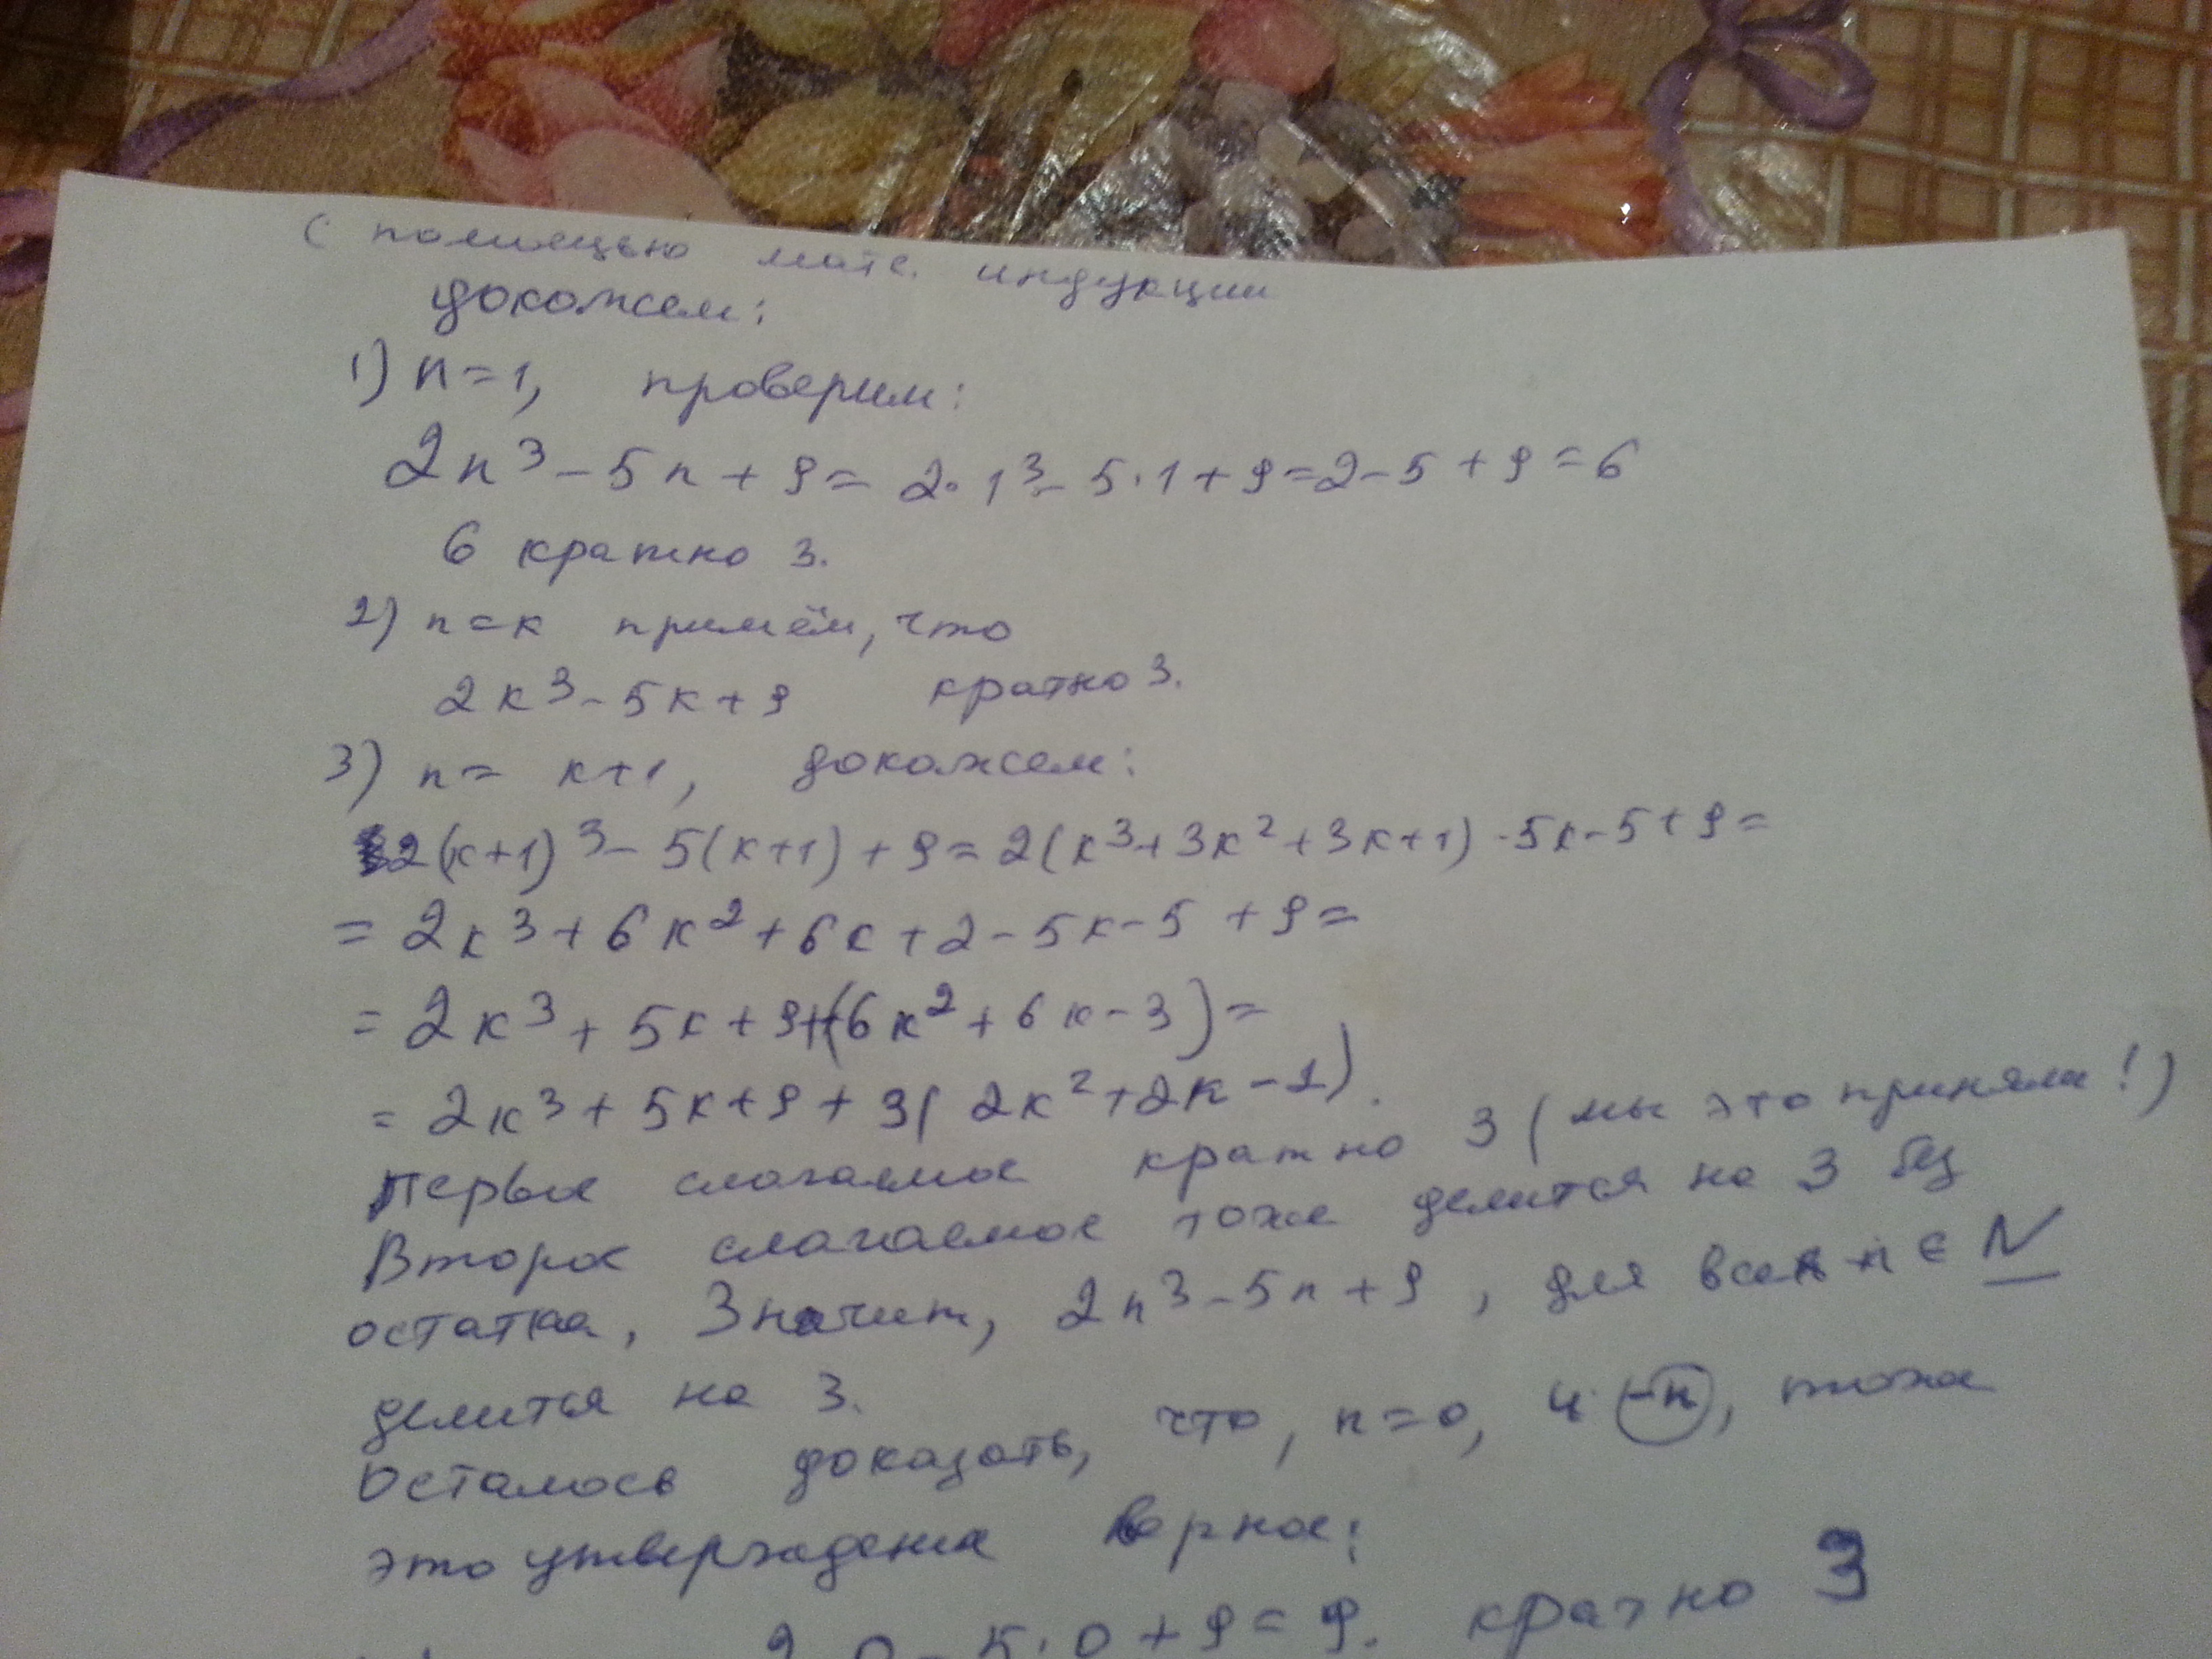 С помощью мате. индукции
докажем:
1) n=1, проверим:
2n³-5n+9=2·1³-5·1+9=2-5+9=6
6 кратно 3.
2) n=к примем, что
2к³-5к+9 кратно 3.
3) n= к+1, докажем:
2(к+1)³-5(к+1)+9=2(к³+3к²+3к+1)-5к-5+9=
=2к³+6к²+6к+2-5к-5+9=
=2к³+5к+9+(6к²+6к-3)=
=2к³+5к+9+3(2к²+2к-1).
Первое слагаемое кратно 3 (мы это приняли!)
Второе слагаемое тоже делится на 3 без
остатка. Значит, 2n³-5n+9, для всех n ∈ N
делится на 3.
Осталось доказать, что, n=0, и -n, тоже
это утверждение верное:
0-5·0+9=9. кратно 3